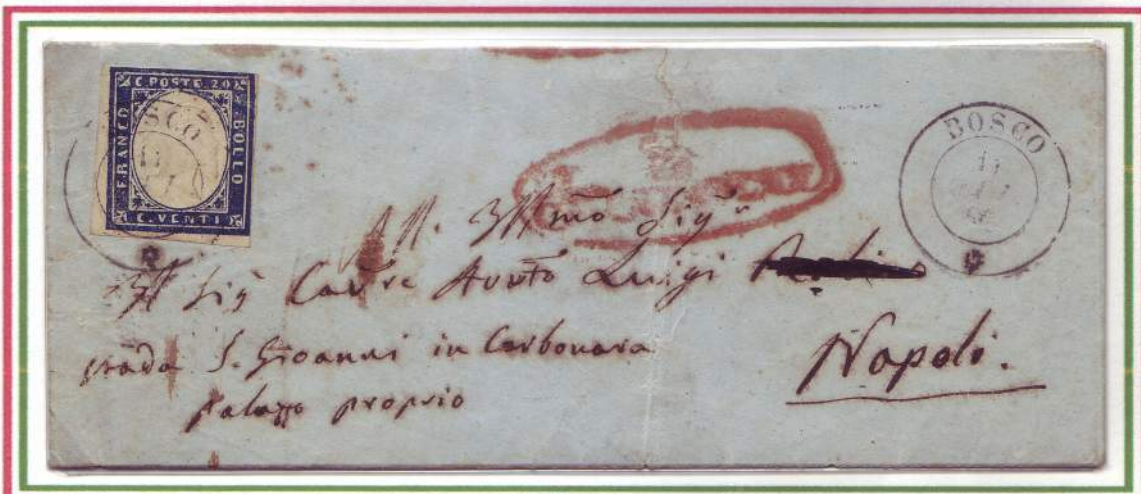 C. POSTE 20
FRANCO
BOLLO
C. VENTI
BOSCO
BOSCO
All. Illmo Sigr
Il Sig Cavre Avvto Luigi
strada S. Gioanni in Carbonara
palazzo proprio
Napoli.